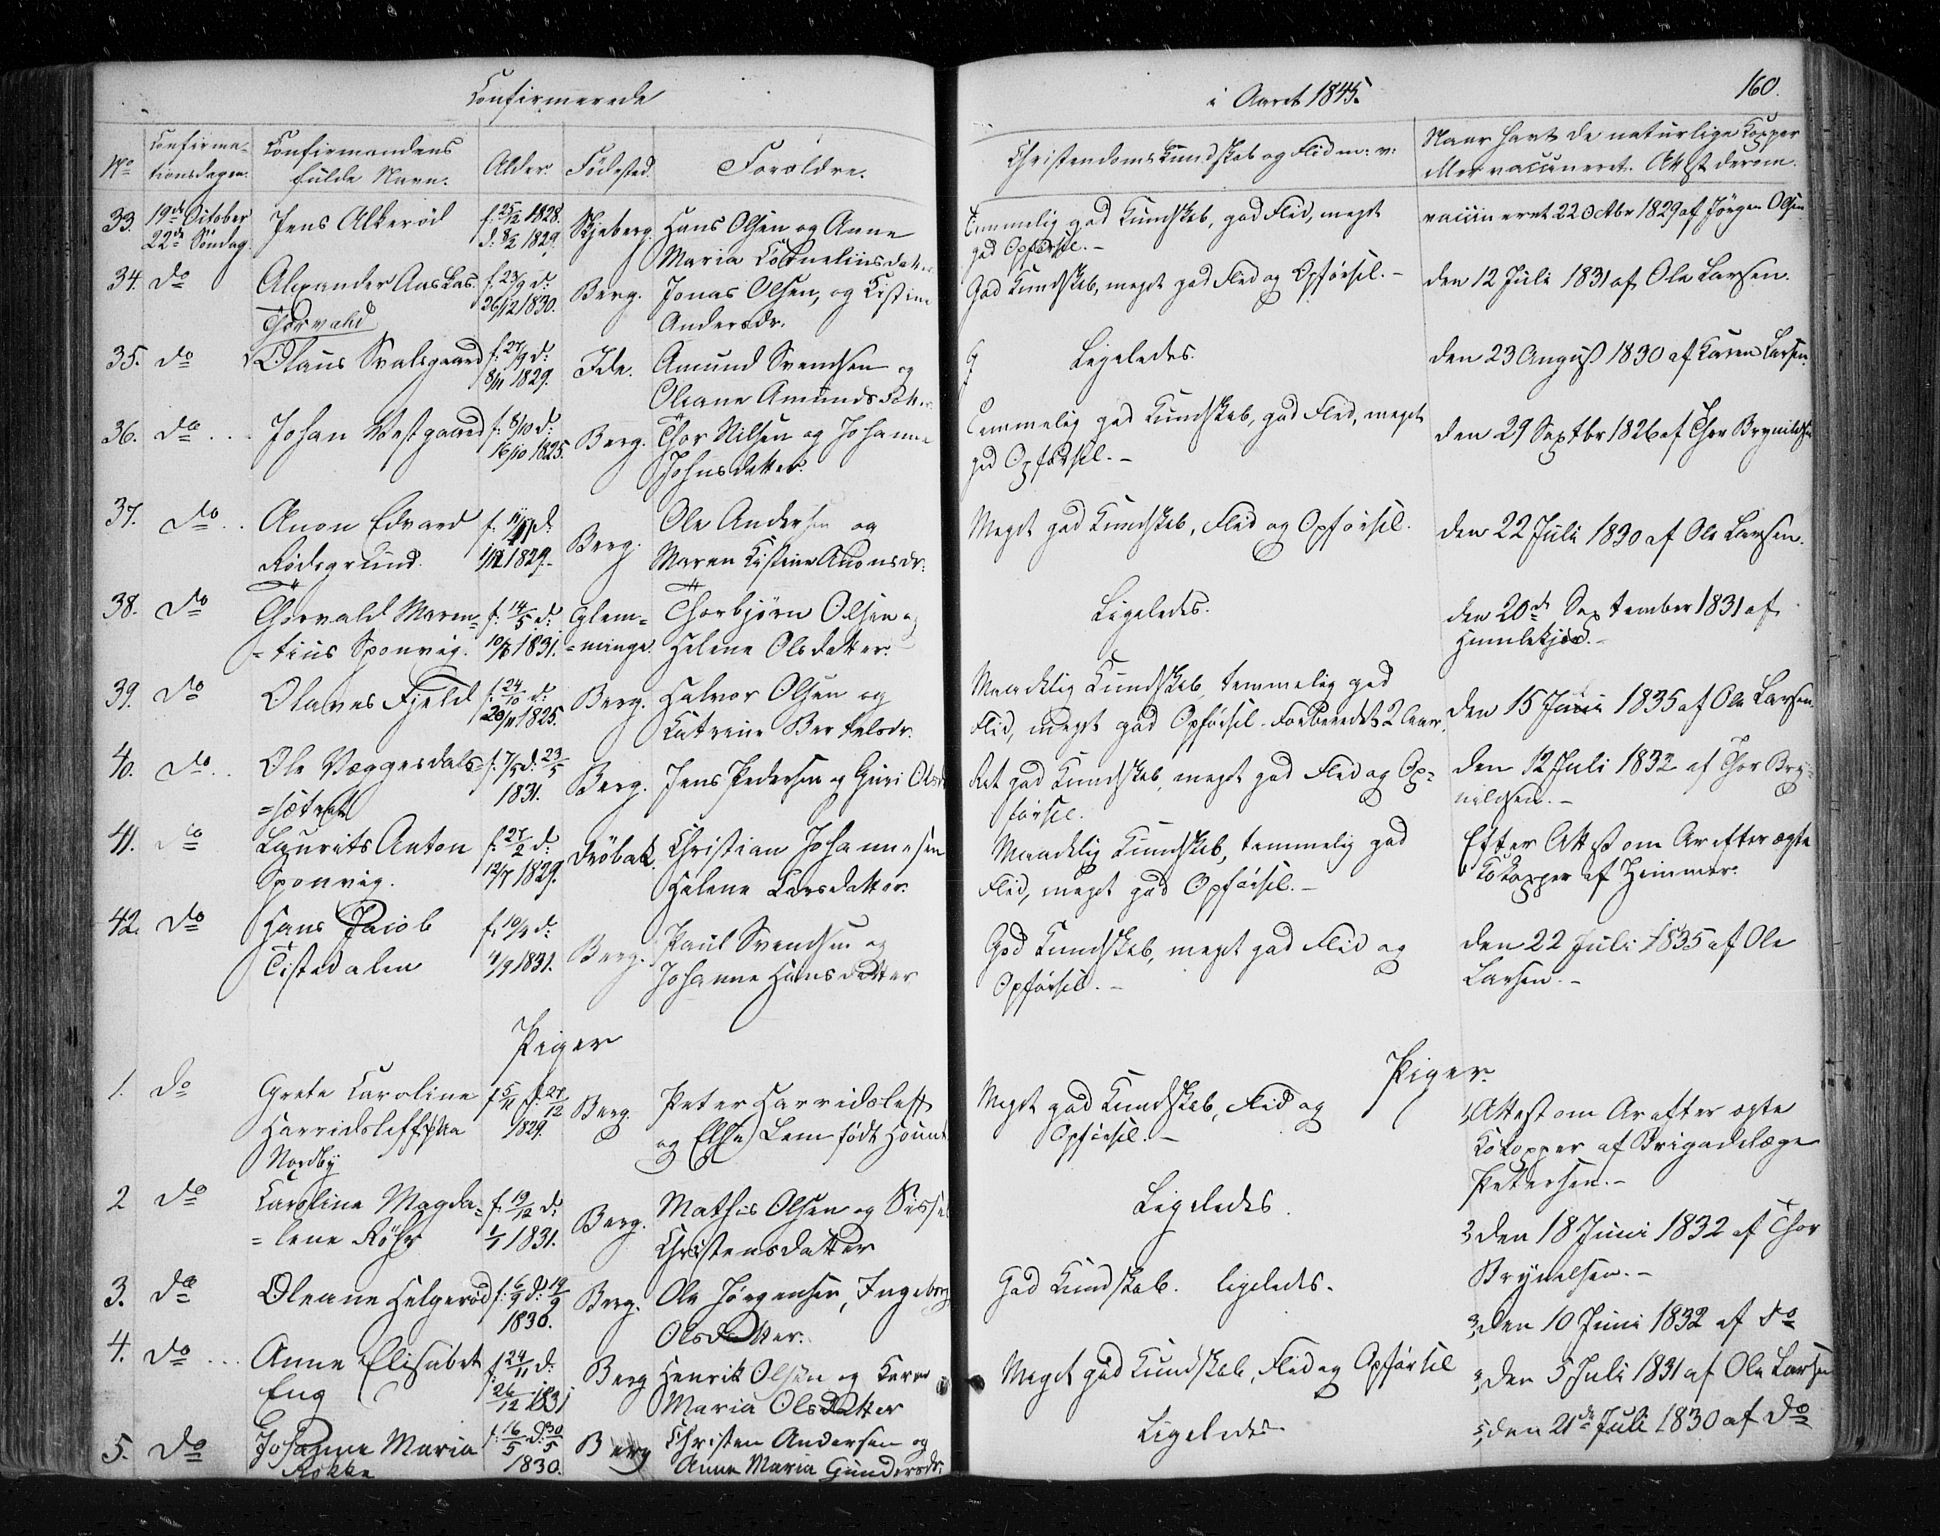 Confirmerede
i Aaret 1845.
160.
No
Confirma-
tionsdagen.
Confirmandens
fulde Navn.
Alder.
Födested.
Forældre.
Christendoms Kundskab og Flid m: v:
Naar havt de naturlige Kopper
eller vaccineret. Attest derom.
33. 19de October
22de Søndag
Jens Akkerød
f. 25/12 1828.
d. 8/2 1829.
Skjeberg.
Hans Olsen og Anne
Maria Corneliusdatter
Temmelig god Kundskab, god Flid, meget
god Opførsel. -
vaccineret 22 Octbr 1829 af Jørgen Olsen
34. do
Alexander Aaskas
Thorvald
f. 23/9 d:
26/12 1830.
Berg.
Jonas Olsen, og Kistine
Andersdr.
God Kundskab, meget god Flid og Opførsel. -
den 12 Juli 1831 af Ole Larsen.
35. do
Olaus Svalsgaard
f. 27/9 d:
8/11 1829.
Ide.
Amund Svendsen og
Oleane Amundsdatter
Ligeledes.
den 23 August 1830 af Karen Larsen.
36. do ...
Johan Vestgaard
f. 8/10 d:
16/10 1825.
Berg.
Thor Nilsen og Johanne
Johnsdatter.
Temmelig god Kundskab, god Flid, meget
god Opførsel. -
den 29 Septbr 1826 af Thor Brynildsen
37. do ..
Anon Edvard
Rødsgrund.
1829.
Berg.
Ole Andersen og
Maren Kistine Anonsdr.
Meget god Kundskab, Flid og Opførsel.
den 22 Juli 1830 af Ole Larsen.
38. do
Thorvald Maren-
=tius Sponvig.
f. 14/5 d:
10/6 1831.
Glem-
=minge.
Thorbjørn Olsen og
Helene Olsdatter.
Ligeledes.
den 20de September 1831 af
Humlekjær. -
39. do
Olaves Fjeld
f. 24/10 d:
20/11 1825.
Berg.
Halvor Olsen og
Katrine Bertelsdr.
Maadelig Kundskab, temmelig god
Flid, meget god Opførsel. Forberedet 2 Aar.
den 15 Juni 1835 af Ole Larsen.
40. do ..
Ole Væggesdals-
=sætret
f. 7/5 d. 23/5
1831.
Berg.
Jens Pedersen og Guri Olsdr
Ret god Kundskab, meget god Flid og Op-
førsel.
den 12 Juli 1832 af Thor Bry-
nildsen. -
41. do
Laurits Anton
Sponvig.
f. 27/2 d.
12/7 1829.
Drøbak.
Christian Johannesen
Helene Larsdatter.
Maadelig Kundskab, temmelig god
Flid, meget god Opførsel. -
Efter Attest om Ar efter ægte
Kokopper af Heimmer.
42. do
Hans Jacob
Tistedalen
f. 10/8 d:
4/9 1831.
Berg.
Paul Svendsen og
Johanne Hansdatter
God Kundskab, meget god Flid og
Opførsel. -
den 22 Juli 1835 af Ole
Larsen. -
Piger
Piger.
1. do
Grete Caroline
Harridsleff
Nordby
f 5/11 d. 27/12
1829.
Berg.
Peter Harridsleff
og Else Lem født Hount
Meget god Kundskab, Flid og
Opførsel. -
1, Attest om Ar efter ægte
Kokopper af Brigadelæge
Petersen. -
2 do
Caroline Magda-
=lene Röhr
f. 19/12 d:
1/1 1831.
Berg.
Mathis Olsen og Sissel
Christensdatter
Ligeledes.
2 den 18 Juni 1832 af Thor
Brynelsen. -
3. do
Oleane Helgerød
f. 6/9 d. 19/9
1830.
Berg.
Ole Jørgensen, Ingeborg
Olsdatter.
God Kundskab. ligeledes.
3, den 10 Juni 1832 af do
4. do ...
Anne Elisabet
Eng
f. 24/11 d.
26/12 1831
Berg
Henrik Olsen og Karen
Maria Olsdatter
Meget god Kundskab, Flid og Opførsel
den 5 Juli 1831 af Ole Larsen
5. do
Johanne Maria
Rokke
f. 16/5 d. 30/5
1830.
Berg
Christen Andersen og
Anne Maria Gundersdr.
Ligeledes
5, den 21de Juli 1830 af do